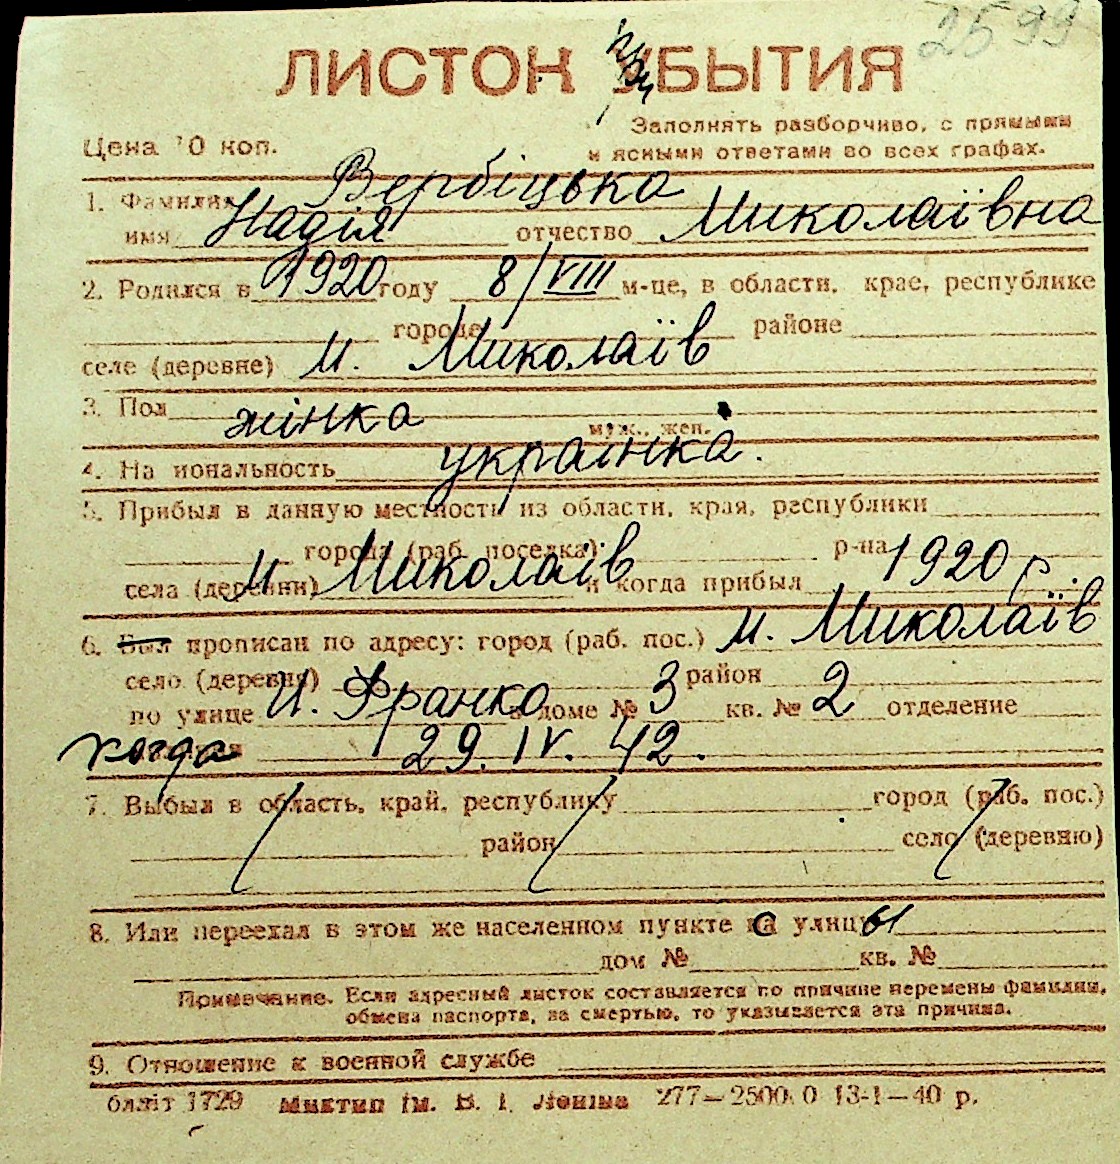 2599
ЛИСТОК ПРИБЫТИЯ
Цена 10 коп.
Заполнять разборчиво, с прямыми
и ясными ответами во всех графах.
1. Фамилия Вербіцька
имя Надія отчество Миколаївна
2. Родился в 1920 году 8/VIII м-це, в области, крае, республике
городе районе
селе (деревне) м. Миколаїв
3. Пол жінка муж., жен.
4. На иональность українка.
5. Прибыл в данную местность из области, края, республики
города (раб. поселка) р-на
села (деревни) м. Миколаїв и когда прибыл 1920 р.
6. Был прописан по адресу: город (раб. пос.) м. Миколаїв
село (деревня) район
по улице И. Франко в доме № 3 кв. № 2 отделение
когда 29. IV. 42.
7. Выбыл в область, край, республику город (раб. пос.)
район село (деревню)
8. Или переехал в этом же населенном пункте с улицы
дом № кв. №
Примечание. Если адресный листок составляется по причине перемены фамилии,
обмена паспорта, за смертью, то указывается эта причина.
9. Отношение к военной службе
бляіт 1729 Миктип ім. В. І. Леніна 277—2500.0 13-1—40 р.